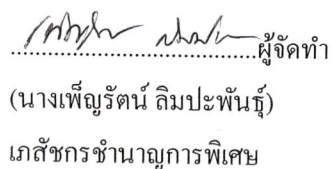 ........................................ผู้จัดทำ
(นางเพ็ญรัตน์ ลิมปะพันธุ์)
เภสัชกรชำนาญการพิเศษ